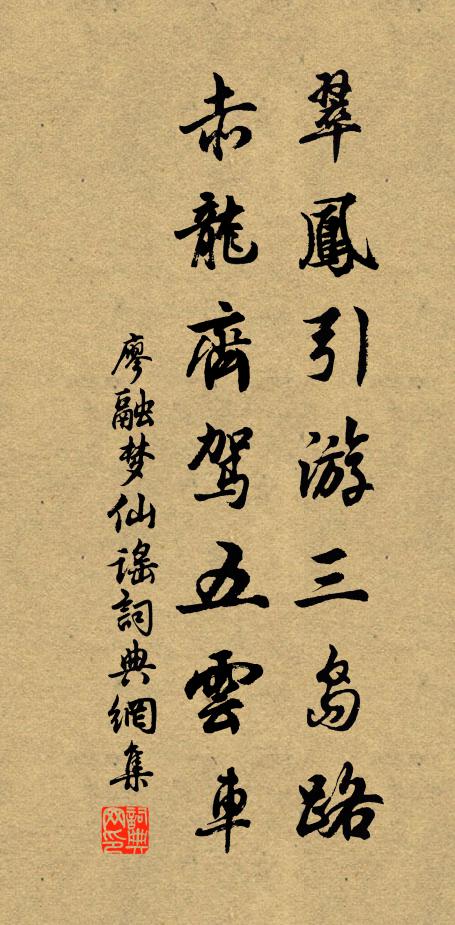 翠鳳引游三島路
赤龍齊駕五雲車
廖融梦仙謠詞典網集
詞典网印